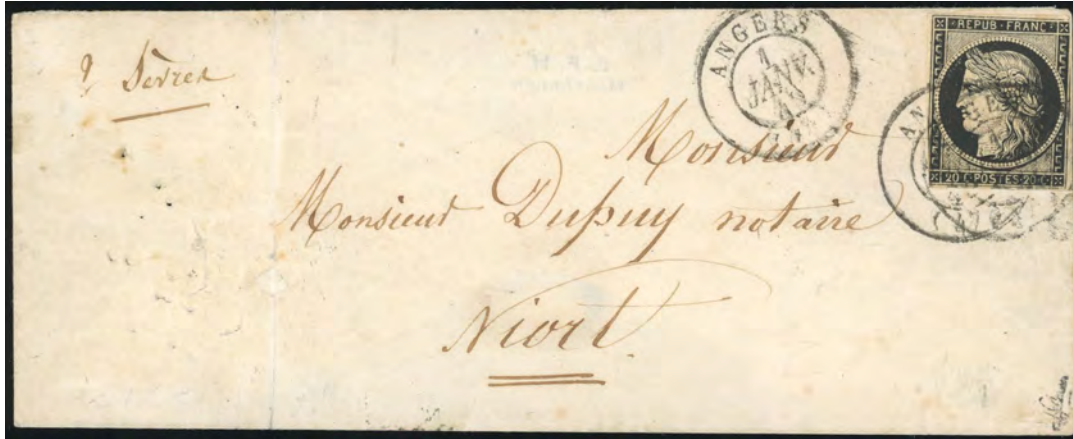 2 Sèvres
ANGERS
1
JANV.
49
REPUB. FRANC.
20 C. POSTES 20 C.
Monsieur
Monsieur Dupuy notaire
Niort